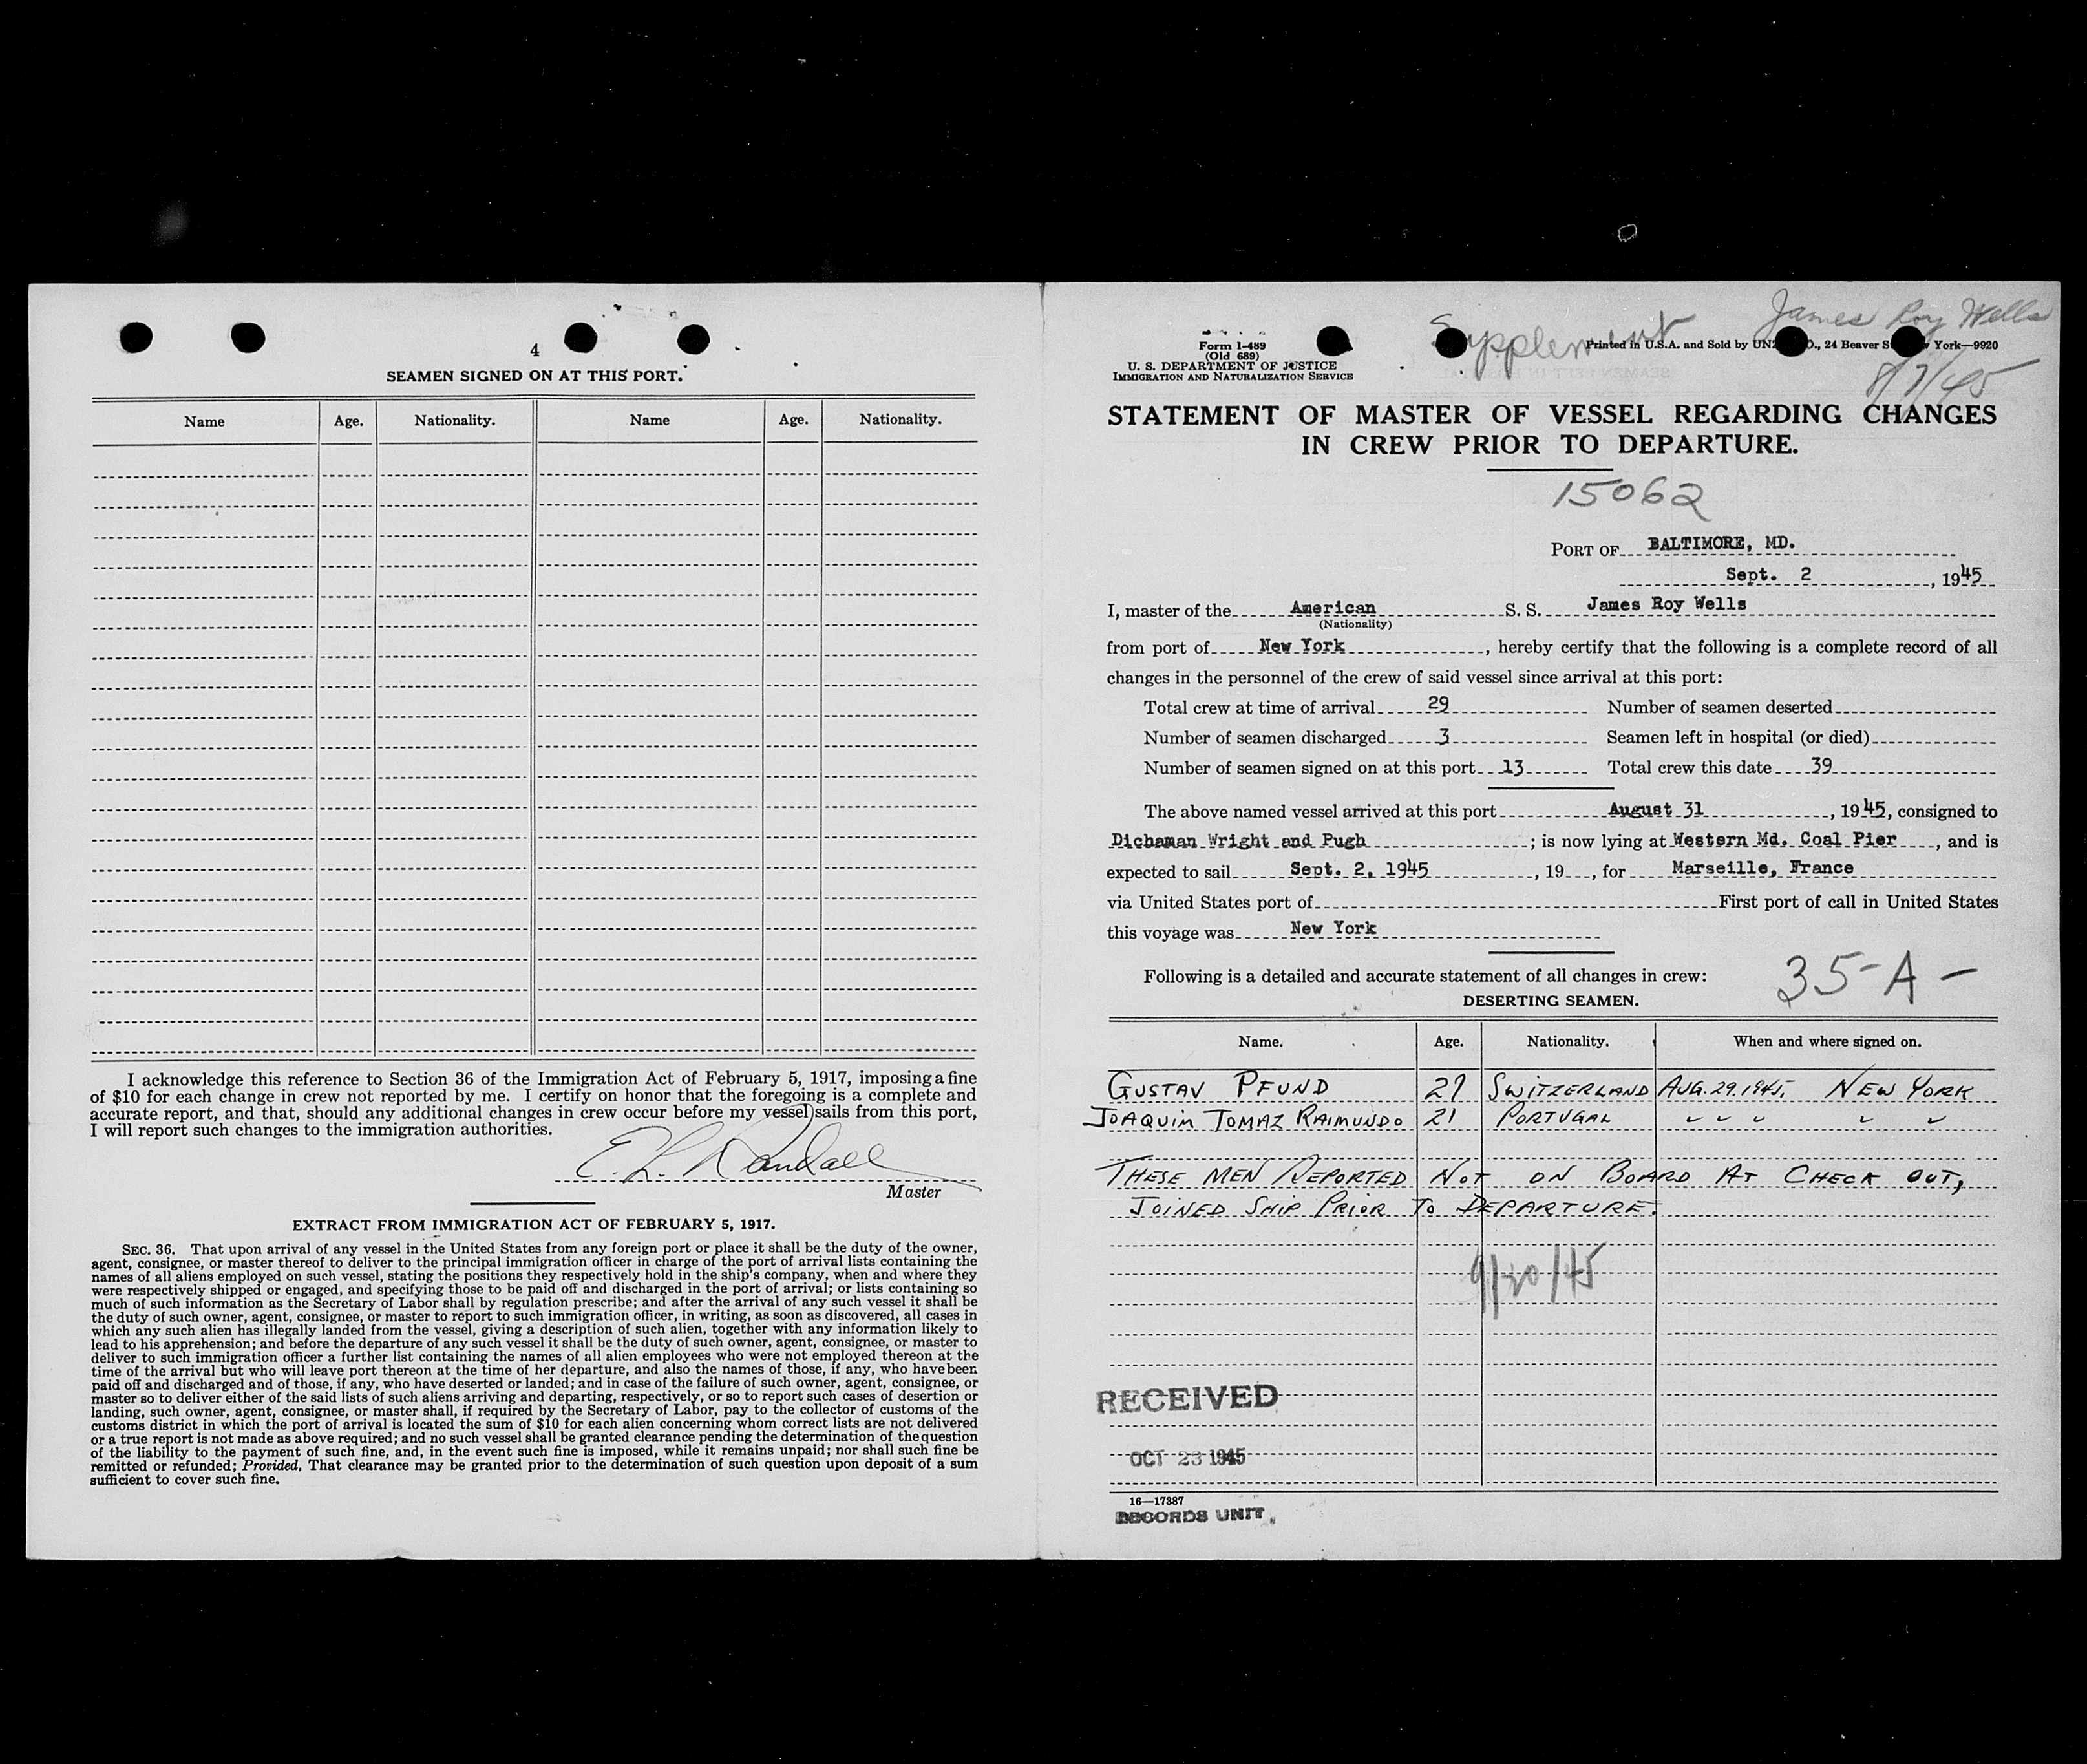 4
SEAMEN SIGNED ON AT THIS PORT.
Name Age. Nationality. Name Age. Nationality.
I acknowledge this reference to Section 36 of the Immigration Act of February 5, 1917, imposing a fine
of $10 for each change in crew not reported by me. I certify on honor that the foregoing is a complete and
accurate report, and that, should any additional changes in crew occur before my vessel sails from this port,
I will report such changes to the immigration authorities.
E. L. Randall
Master
EXTRACT FROM IMMIGRATION ACT OF FEBRUARY 5, 1917.
SEC. 36. That upon arrival of any vessel in the United States from any foreign port or place it shall be the duty of the owner,
agent, consignee, or master thereof to deliver to the principal immigration officer in charge of the port of arrival lists containing the
names of all aliens employed on such vessel, stating the positions they respectively hold in the ship's company, when and where they
were respectively shipped or engaged, and specifying those to be paid off and discharged in the port of arrival; or lists containing so
much of such information as the Secretary of Labor shall by regulation prescribe; and after the arrival of any such vessel it shall be
the duty of such owner, agent, consignee, or master to report to such immigration officer, in writing, as soon as discovered, all cases in
which any such alien has illegally landed from the vessel, giving a description of such alien, together with any information likely to
lead to his apprehension; and before the departure of any such vessel it shall be the duty of such owner, agent, consignee, or master to
deliver to such immigration officer a further list containing the names of all alien employees who were not employed thereon at the
time of the arrival but who will leave port thereon at the time of her departure, and also the names of those, if any, who have been
paid off and discharged and of those, if any, who have deserted or landed; and in case of the failure of such owner, agent, consignee, or
master so to deliver either of the said lists of such aliens arriving and departing, respectively, or so to report such cases of desertion or
landing, such owner, agent, consignee, or master shall, if required by the Secretary of Labor, pay to the collector of customs of the
customs district in which the port of arrival is located the sum of $10 for each alien concerning whom correct lists are not delivered
or a true report is not made as above required; and no such vessel shall be granted clearance pending the determination of the question
of the liability to the payment of such fine, and, in the event such fine is imposed, while it remains unpaid; nor shall such fine be
remitted or refunded; Provided, That clearance may be granted prior to the determination of such question upon deposit of a sum
sufficient to cover such fine.
James Roy Wells
Supplement
Form I-489
(Old 689)
U. S. DEPARTMENT OF JUSTICE
IMMIGRATION AND NATURALIZATION SERVICE
Printed in U.S.A. and Sold by 24 Beaver York—9920
STATEMENT OF MASTER OF VESSEL REGARDING CHANGES
IN CREW PRIOR TO DEPARTURE.
15062
PORT OF BALTIMORE, MD.
Sept. 2, 1945
I, master of the American S. S. James Roy Wells
(Nationality)
from port of New York, hereby certify that the following is a complete record of all
changes in the personnel of the crew of said vessel since arrival at this port:
Total crew at time of arrival 29 Number of seamen deserted
Number of seamen discharged 3 Seamen left in hospital (or died)
Number of seamen signed on at this port 13 Total crew this date 39
The above named vessel arrived at this port August 31, 1945, consigned to
Dichaman Wright and Pugh; is now lying at Western Md. Coal Pier, and is
expected to sail Sept. 2, 1945, 19, for Marseille, France
via United States port of First port of call in United States
this voyage was New York
Following is a detailed and accurate statement of all changes in crew:
35-A-
DESERTING SEAMEN.
Name. Age. Nationality. When and where signed on.
GUSTAV PFUND 27 SWITZERLAND AUG. 29. 1945, NEW YORK
JOAQUIM TOMAZ RAIMUNDO 21 PORTUGAL " " " " "
THESE MEN REPORTED NOT ON BOARD AT CHECK OUT,
JOINED SHIP PRIOR TO DEPARTURE.
RECEIVED
OCT 23 1945
16—17387
RECORDS UNIT